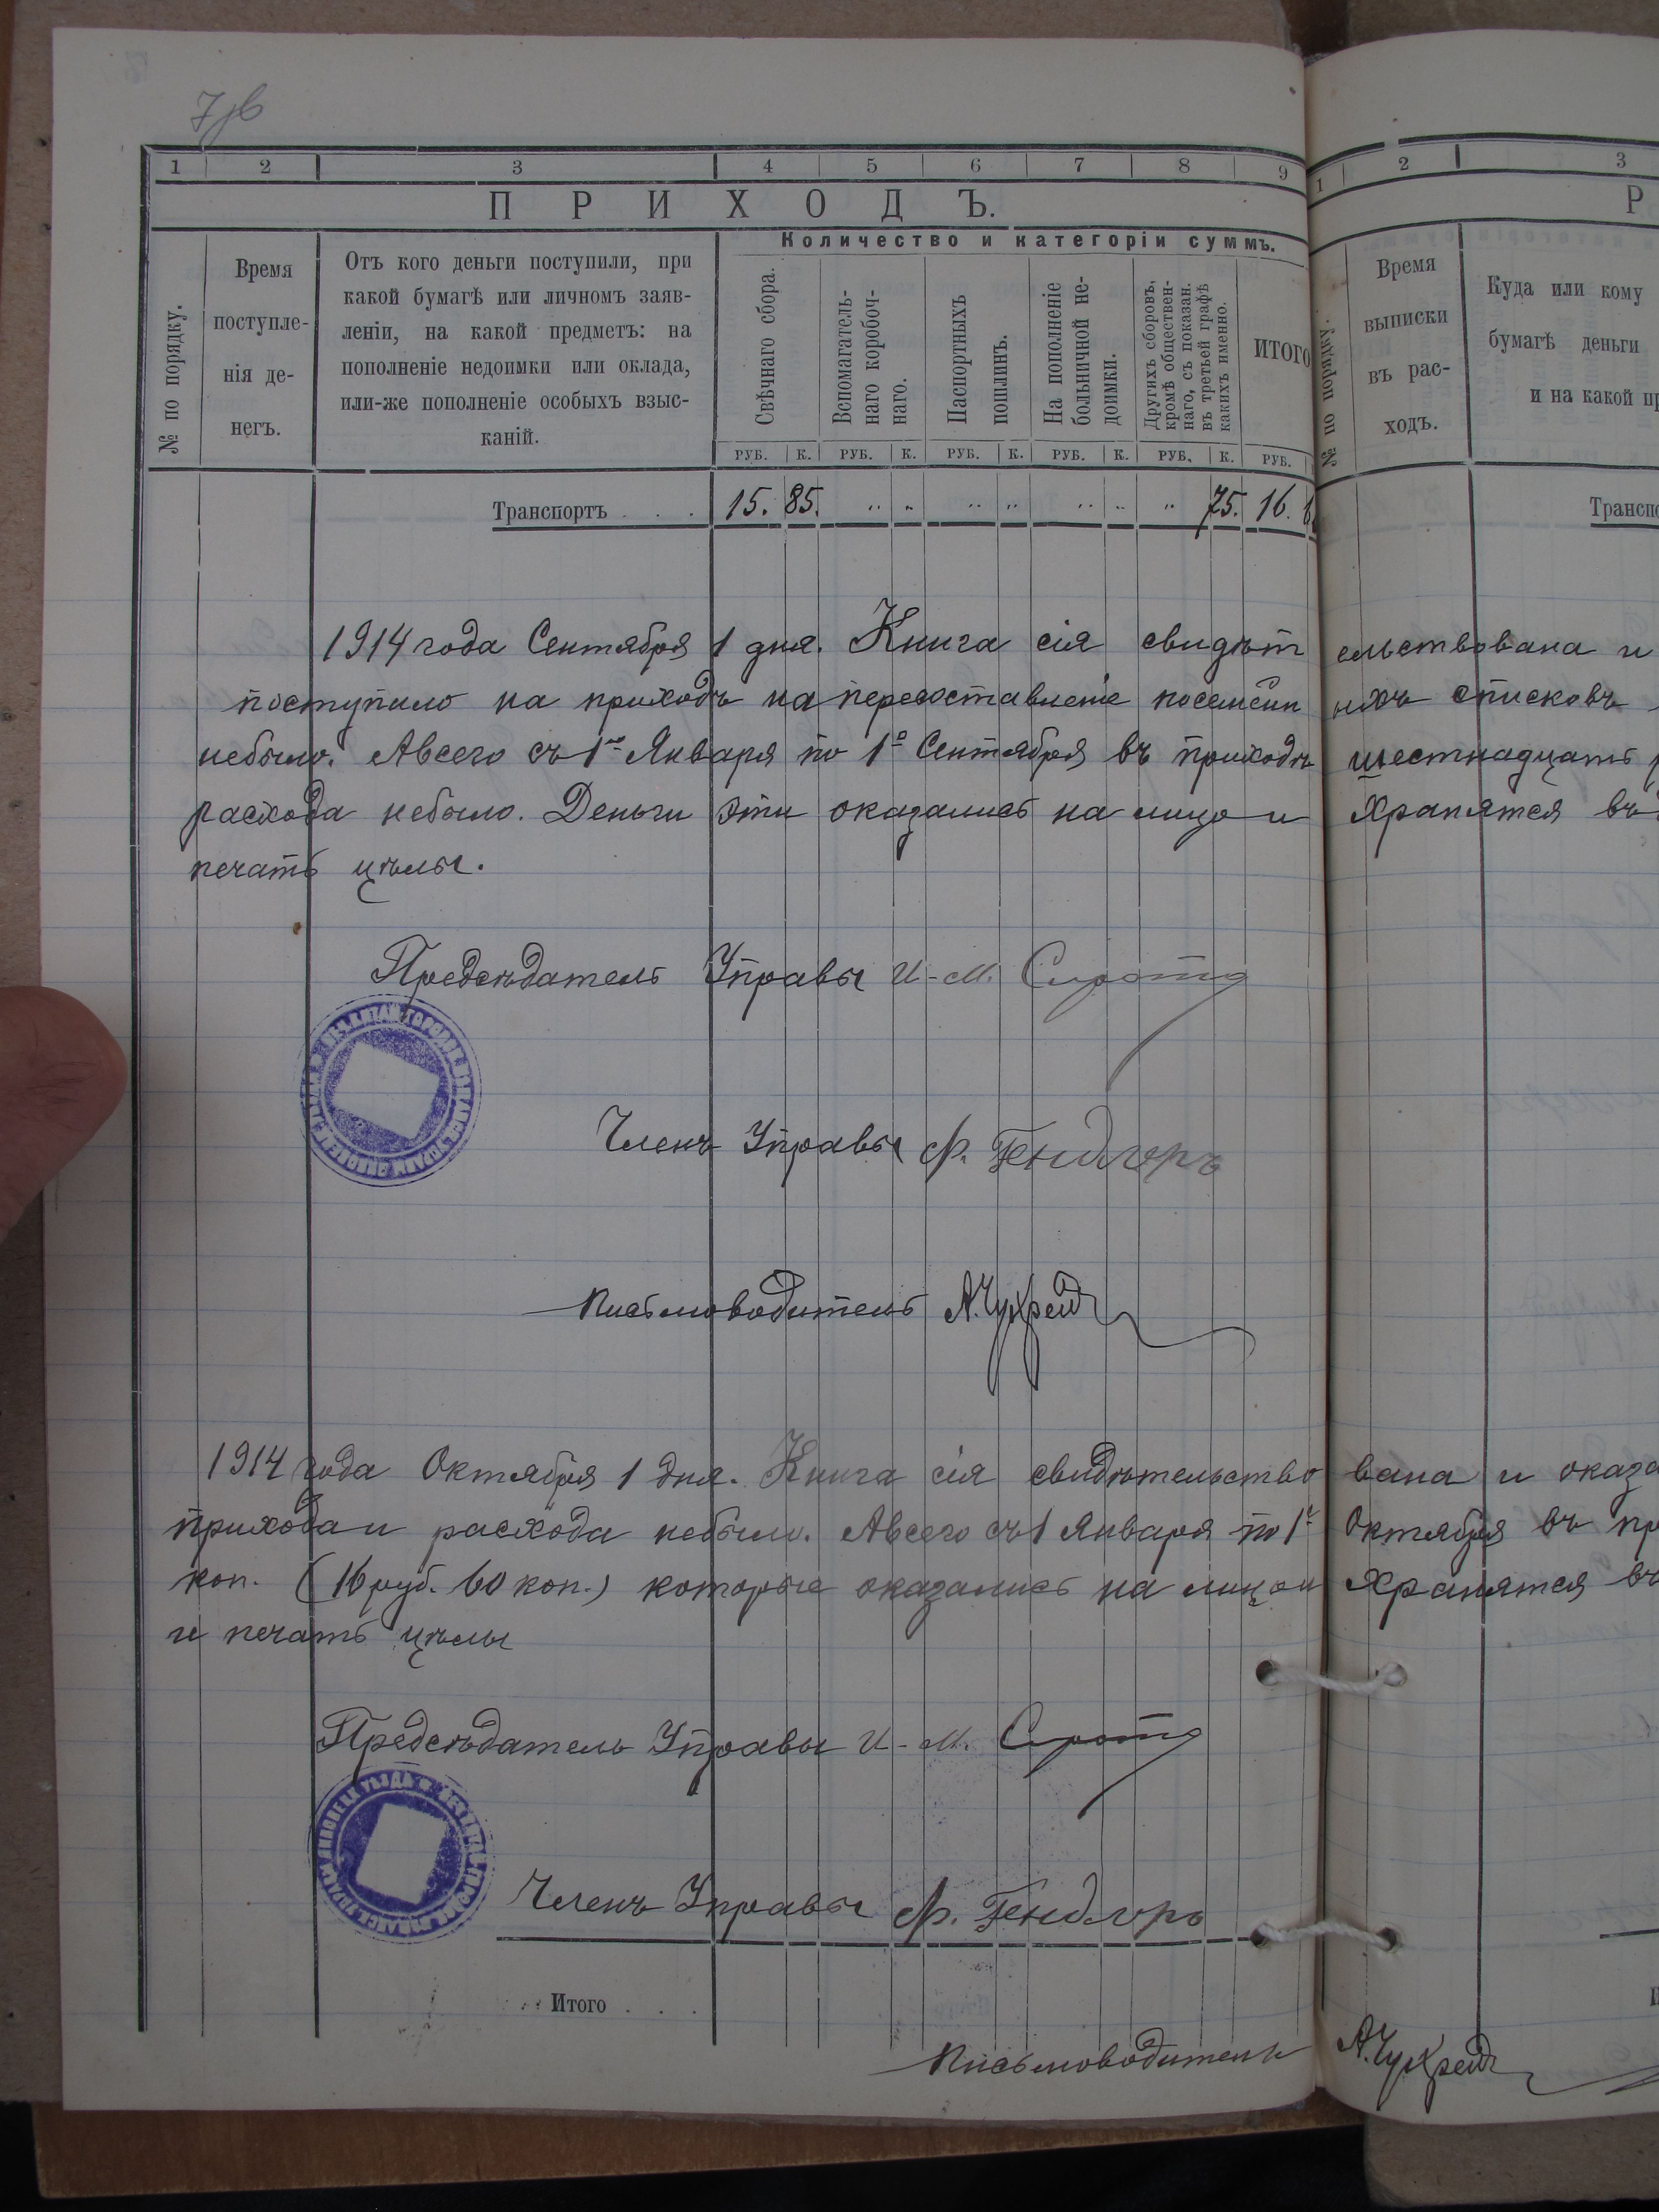 1 2 3 4 5 6 7 8 9 1 2 3
ПРИХОДЪ. Р
Количество и категоріи суммъ.
№ по порядку.
Время
поступле-
нія де-
негъ.
Отъ кого деньги поступили, при
какой бумагѣ или личномъ заяв-
леніи, на какой предметъ: на
пополненіе недоимки или оклада,
или-же пополненіе особыхъ взыс-
каній.
Свѣчнаго сбора.
Вспомагатель-
наго коробоч-
наго.
Паспортныхъ
пошлинъ.
На пополненіе
больничной не-
доимки.
Другихъ сборовъ,
кромѣ обществен-
наго, съ показан.
въ третьей графѣ
какихъ именно.
ИТОГО
РУБ. К. РУБ. К. РУБ. К. РУБ. К. РУБ. К. РУБ.
№ по порядку.
Время
выписки
въ рас-
ходъ.
Куда или кому
бумагѣ деньги
и на какой пр
Транспортъ . . . 15. 85. „ „ „ „ „ „ „ 75. 16. Трансп
1914 года Сентября 1 дня. Книга сія свидѣтельствована и
поступило на приходъ на переоставленіе посемейныхъ списковъ
небыло. Авсего съ 1го Января по 1е Сентября въ приходѣ шестнадцать
расхода небыло. Деньги эти оказались на лицо и хранятся въ
печать цѣлы.
Предсѣдатель Управы И-М. Сирота
Членъ Управы Ф. Гендлеръ
Письмоводитель А. Чухрей
1914 года Октября 1 дня. Книга сія свидѣтельствована и оказа
прихода и расхода небыло. Авсего съ 1 Января по 1е Октября въ пр
коп. (16 руб. 60 коп.) которые оказались на лицо и хранятся въ
и печать цѣлы
Предсѣдатель Управы И-М. Сирота
Членъ Управы Ф. Гендлеръ
Итого . . .
Письмоводитель А. Чухрей